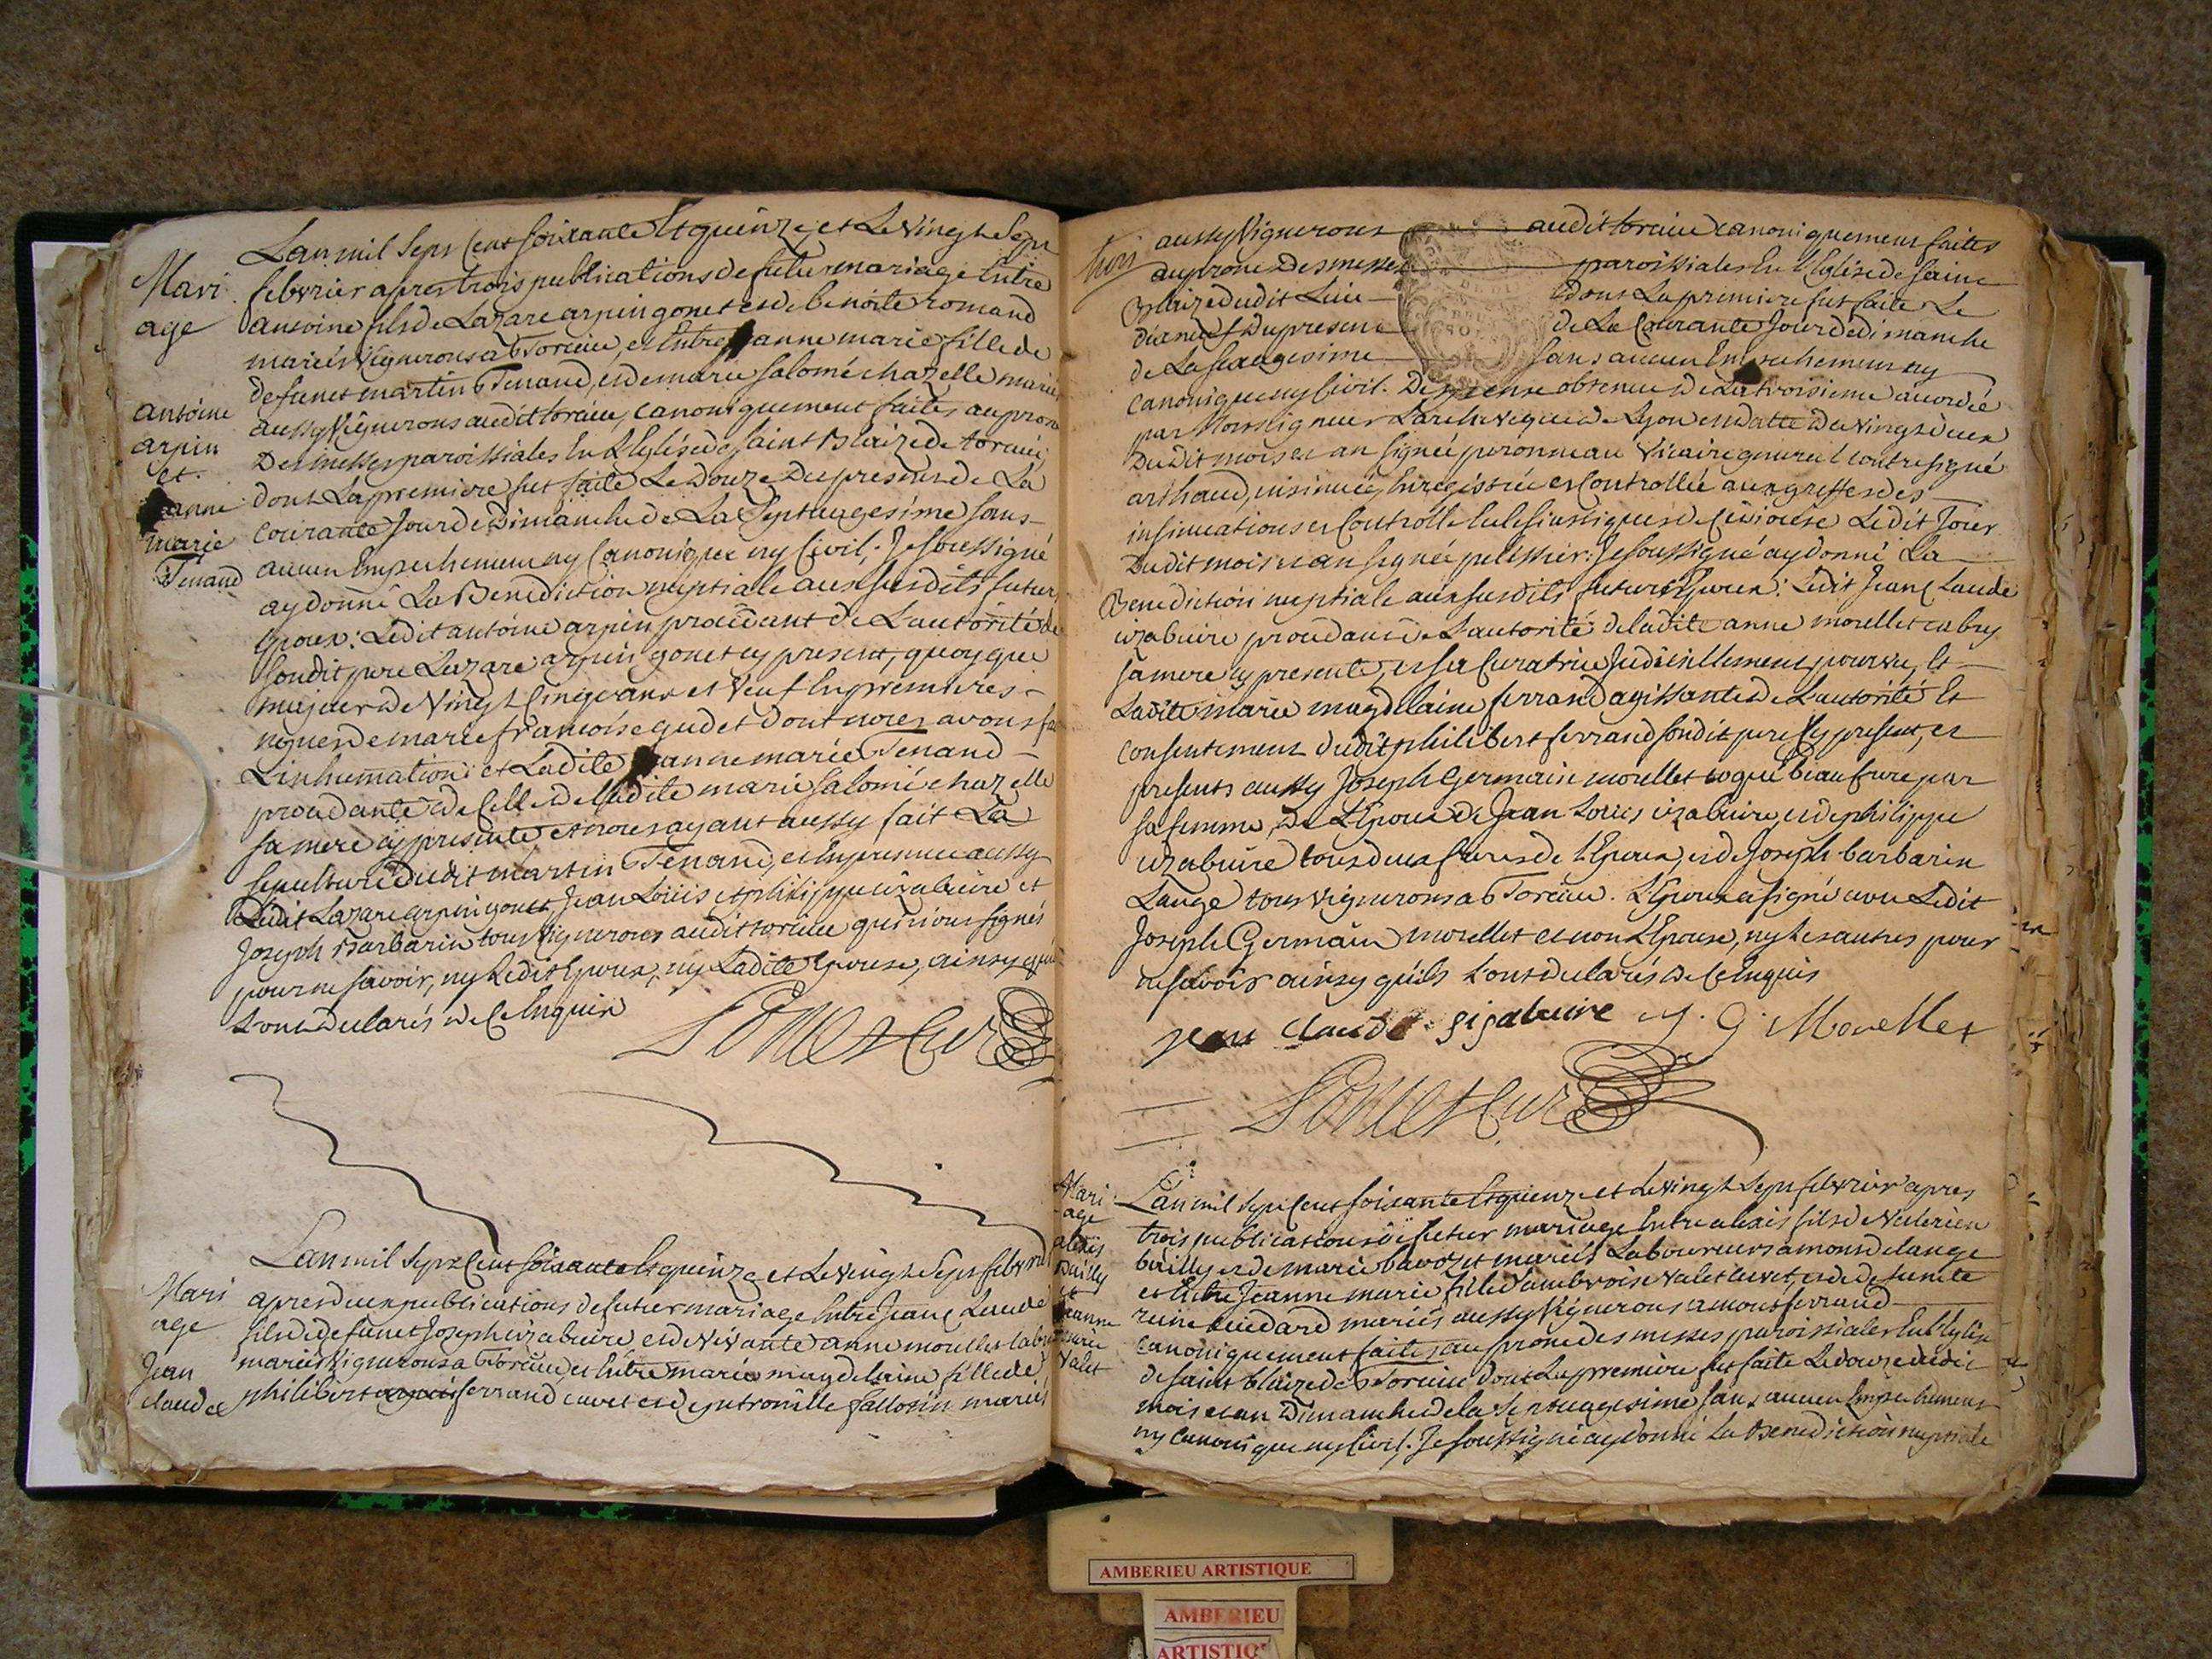 Lan mil Sept Cent soixante Et quinze, et Le vingt Sept
Mari
age
febvrier apres trois publications de futur mariage Entre
antoine fils de Lazare arpin gonet et de benoite romand
mariés Vignerons a Torcieu, et Entre jeanne marie fille de
defunct martin Tenand, et de marie salomé chazelle mariés
antoine
arpin
et
jeanne
marie
Tenand
aussy Vignerons audit torcieu, canoniquement faites au prone
Des messes paroissiales En L'Eglise de saint Blaize de torcieu,
dont La premiere fut faite Le Douze Du present de La
Courante Jour de Dimanche de La Septuagesime sans
aucun Empechement ny Canonique ny Civil; Je soussigné
ay donné La Benediction nuptiale aux susdits futurs
Epoux: Ledit antoine arpin procédant de L'autorité de
sondit pere Lazare arpin gonet cy present, quoyque
majeur de Vingt Cinq ans et Veuf En premieres
noces de marie françoise gudet dont nous avons fait
L'inhumation; et Ladite jeanne marie Tenand
procedante de Celle de Ladite marie salomé chazelle
sa mere cy presente et nous ayant aussy fait La
sepulture dudit martin Tenand, et En presence aussy
Dudit Lazare arpin gonet, Jean Loüis et philippe izabuire et
Joseph Barbarin tous Vignerons audit torcieu qui n'ont signés
pour ne savoir, ny Ledit Epoux, ny Ladite Epouse, ainsy qu'ils
L'ont declarés de Ce Enquis
Mari
age
Jean
claude
Lan mil Sept Cent soixante Et quinze et Le vingt Sept febvrier
apres deux publications de futur mariage Entre Jean Claude
fils de defunct Joseph izabuire et de vivante anne morellet cabry
mariés Vignerons a Torcieu, et Entre marie magdelaine fille de
philibert ferrand cuvet et de petronille fallosin mariés
trois
aussy Vignerons audit torcieu canoniquement faites
au prone Des messes paroissiales En L'Eglise de saint
Blaize dudit Lieu dont La premiere fut faite Le
du present de La Courante Jour de dimanche
de La sexagesime sans aucun Empechement ny
canonique ny Civil. Dispense obtenue de La troisieme accordée
par Monseigneur L'archevêque de Lyon en datte du vingt deux
Dudit mois et an signée peronneau Vicaire general contresigné
arthaud, insinuée, Enregistrée et Controllée aux greffes des
insinuations et Controlle Eclesiastiques de Ledit Jour
Dudit mois et an signée pelissier: Je soussigné ay donné La
Benediction nuptiale aux susdits futurs Epoux: Ledit Jean Claude
izabuire procedant de L'autorité de ladite anne morellet cabry
sa mere cy presente, et sa Curatrice Judiciellement pourvue, Et
Ladite marie magdelaine ferrand agissante de L'autorité Et
Consentement dudit philibert ferrand sondit pere Cy present, et
presents aussy Joseph Germain morellet beaufrere par
sa femme, de L'Epoux de Jean Loüis izabuire, et de philippe
izabuire tous deux freres de L'Epoux, et de Joseph barbarin
Lange tous vignerons a Torcieu. L'Epoux a signé avec Ledit
Joseph Germain morellet et non L'Epouse, ny Les autres pour
ne savoir ainsy qu'ils L'ont declarés de Ce Enquis
jean claude j. g. Morellet
Mari
age
alexis
Bailly
et
jeanne
marie
Valet
Lan mil Sept Cent soixante Et quinze et Le vingt Sept febvrier apres
trois publications de futur mariage Entre alexis fils de Valerien
bailly et de marie mariés Laboureurs a mont de lange
et Entre Jeanne marie fille d'ambroise Valet et de defuncte
reine mariés aussy Vignerons a montferrand
canoniquement faites au prone des messes paroissiales En L'Eglise
de saint blaize de Torcieu dont La premiere fut faite Le douze dudit
mois et an Dimanche de la Septuagesime sans aucun Empechement
ny canonique ny Civil. Je soussigné ay donné La Benediction nuptiale
AMBERIEU ARTISTIQUE
AMBERIEU